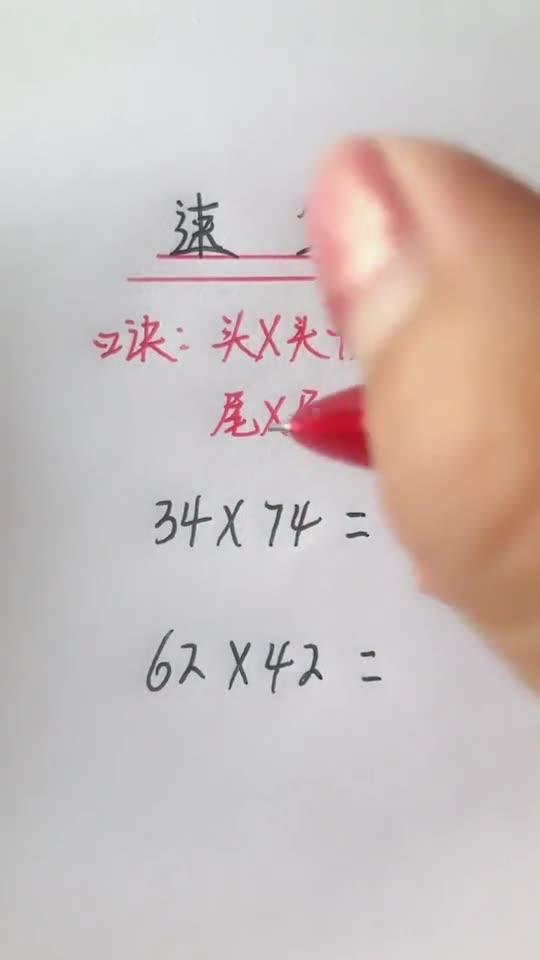 速
口诀：头X头
尾X
34X74=
62X42=